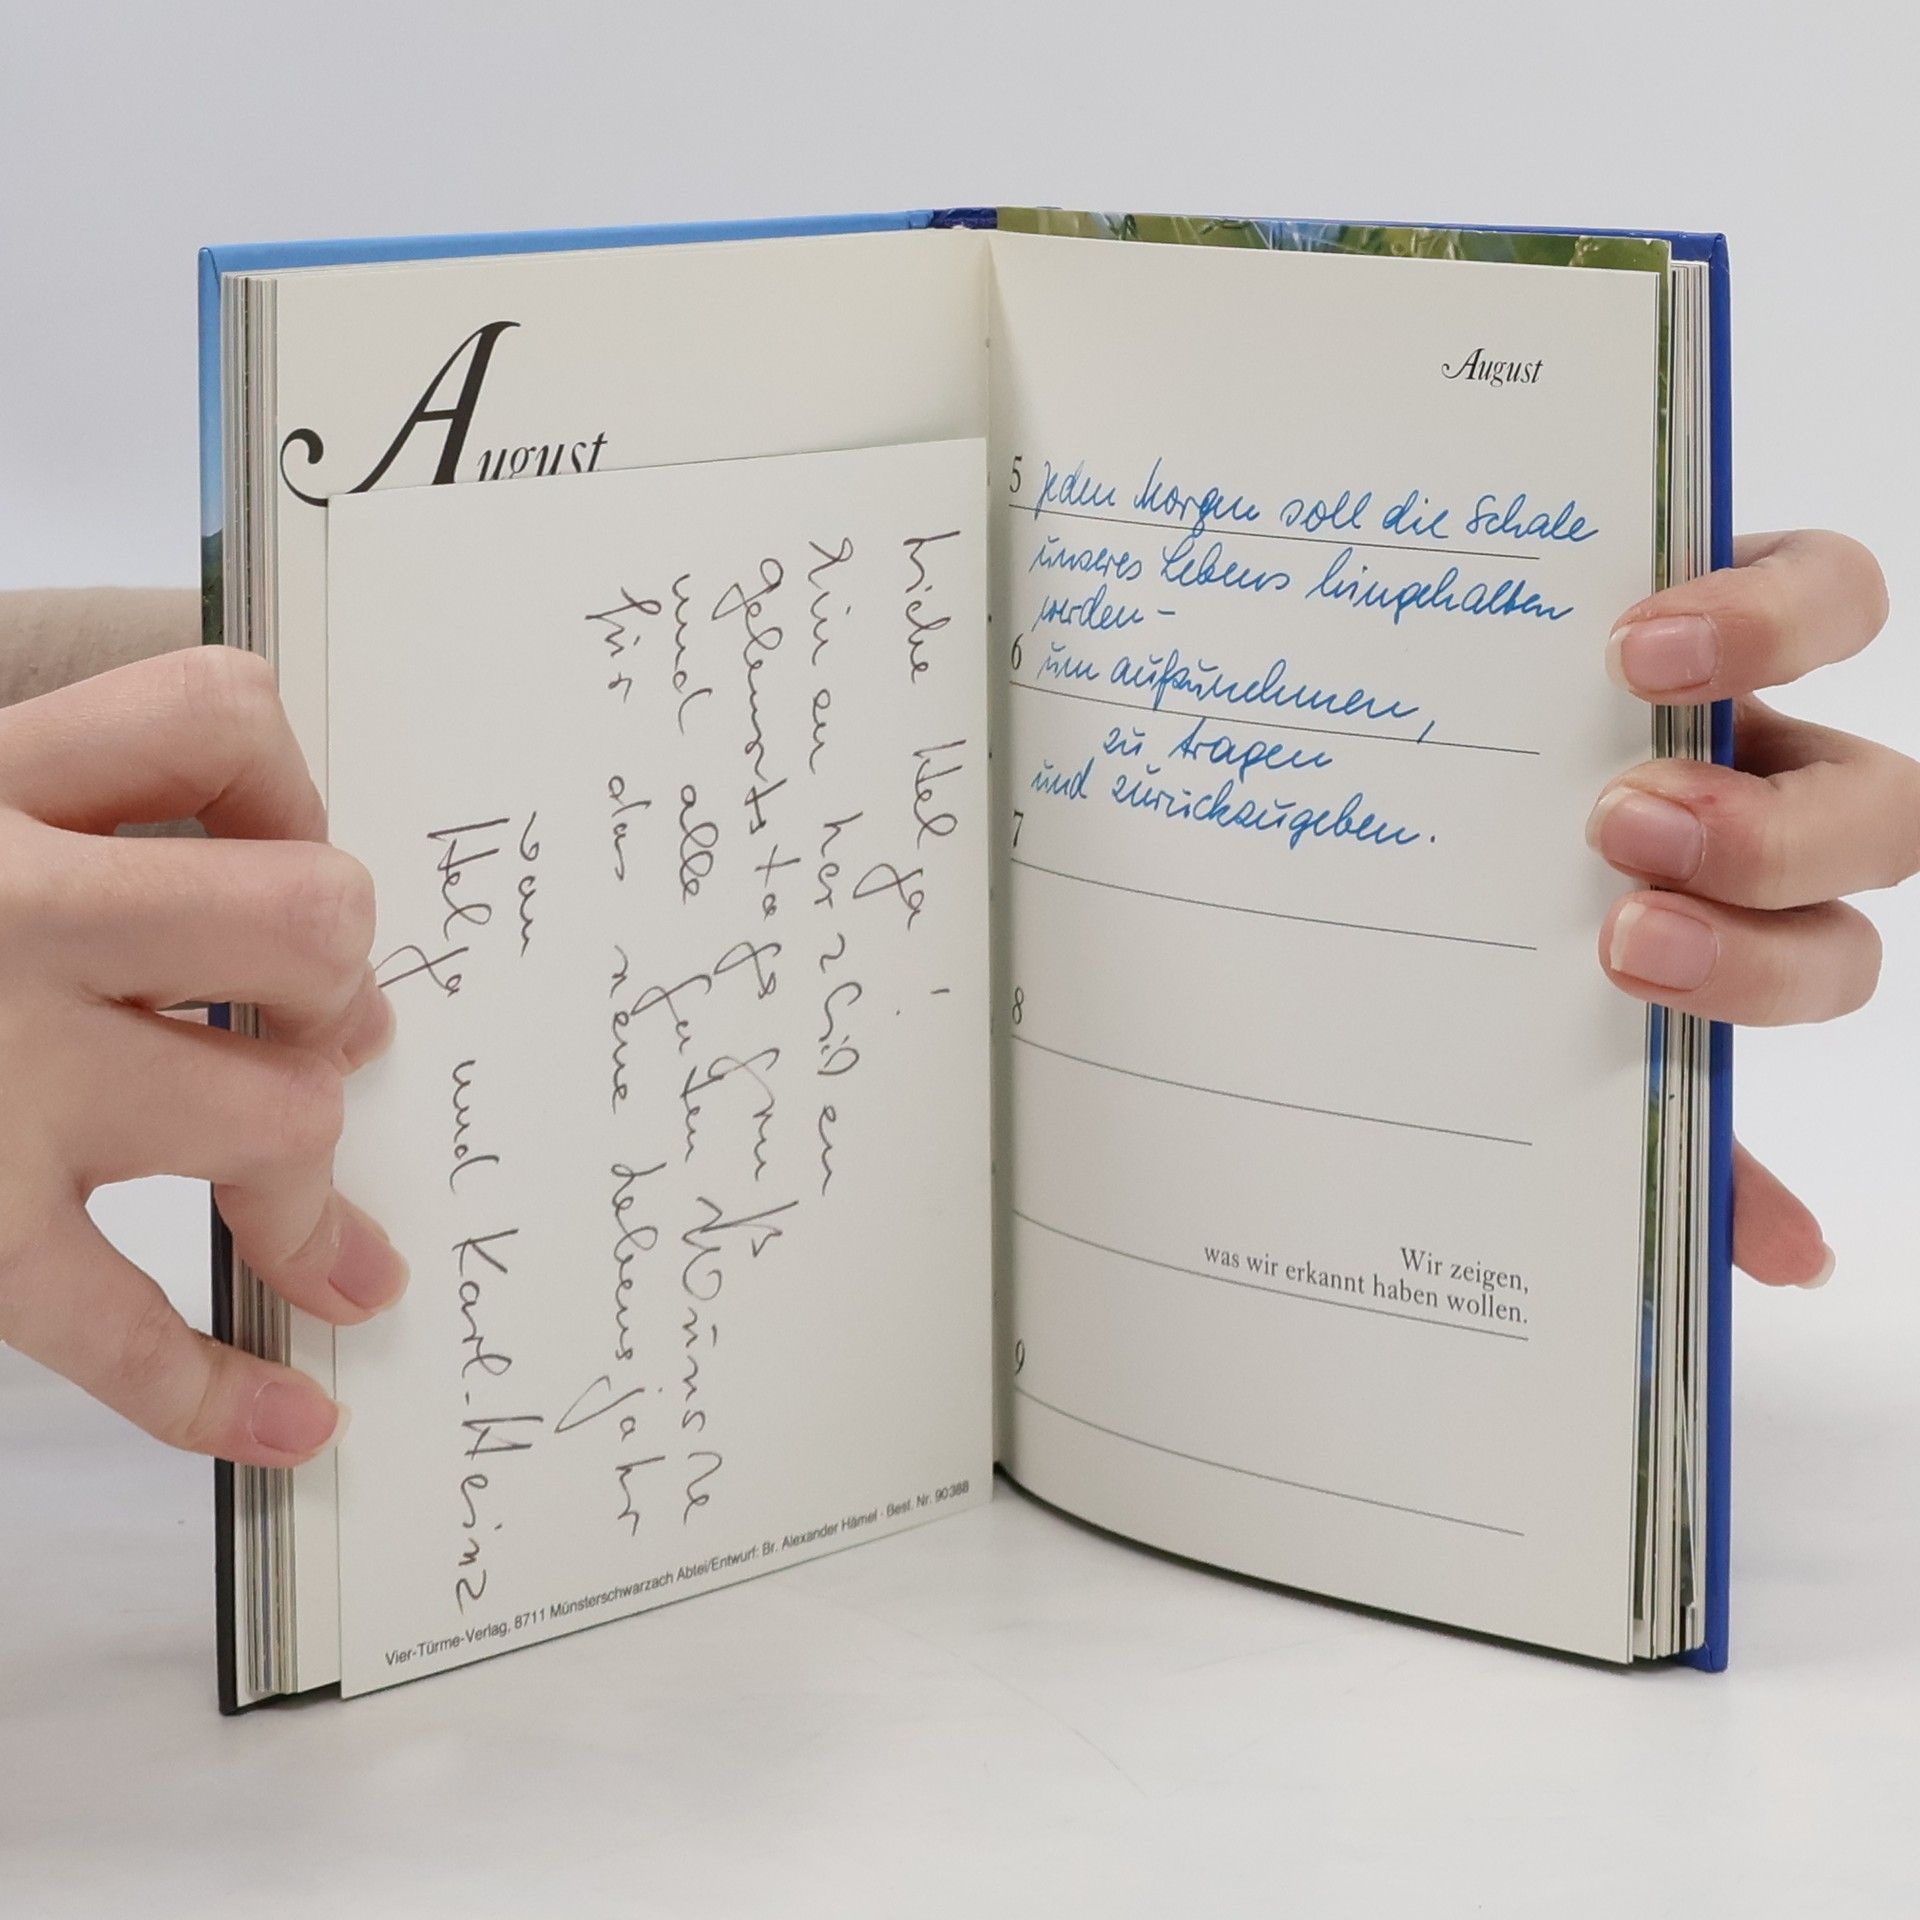 August
Liebe Helga!
Einen herzlichen
Geburtstagsgruß
und alle guten Wünsche
für das neue Lebensjahr
von
Helga und Karl-Heinz
Vier-Türme-Verlag, 8711 Münsterschwarzach Abtei/Entwurf: Br. Alexander Hämel · Best. Nr. 90388
August
5 Jeden Morgen soll die Schale
unseres Lebens hingehalten
werden –
6 um aufzunehmen,
zu tragen
und zurückzugeben.
7
8
Wir zeigen,
was wir erkannt haben wollen.
9